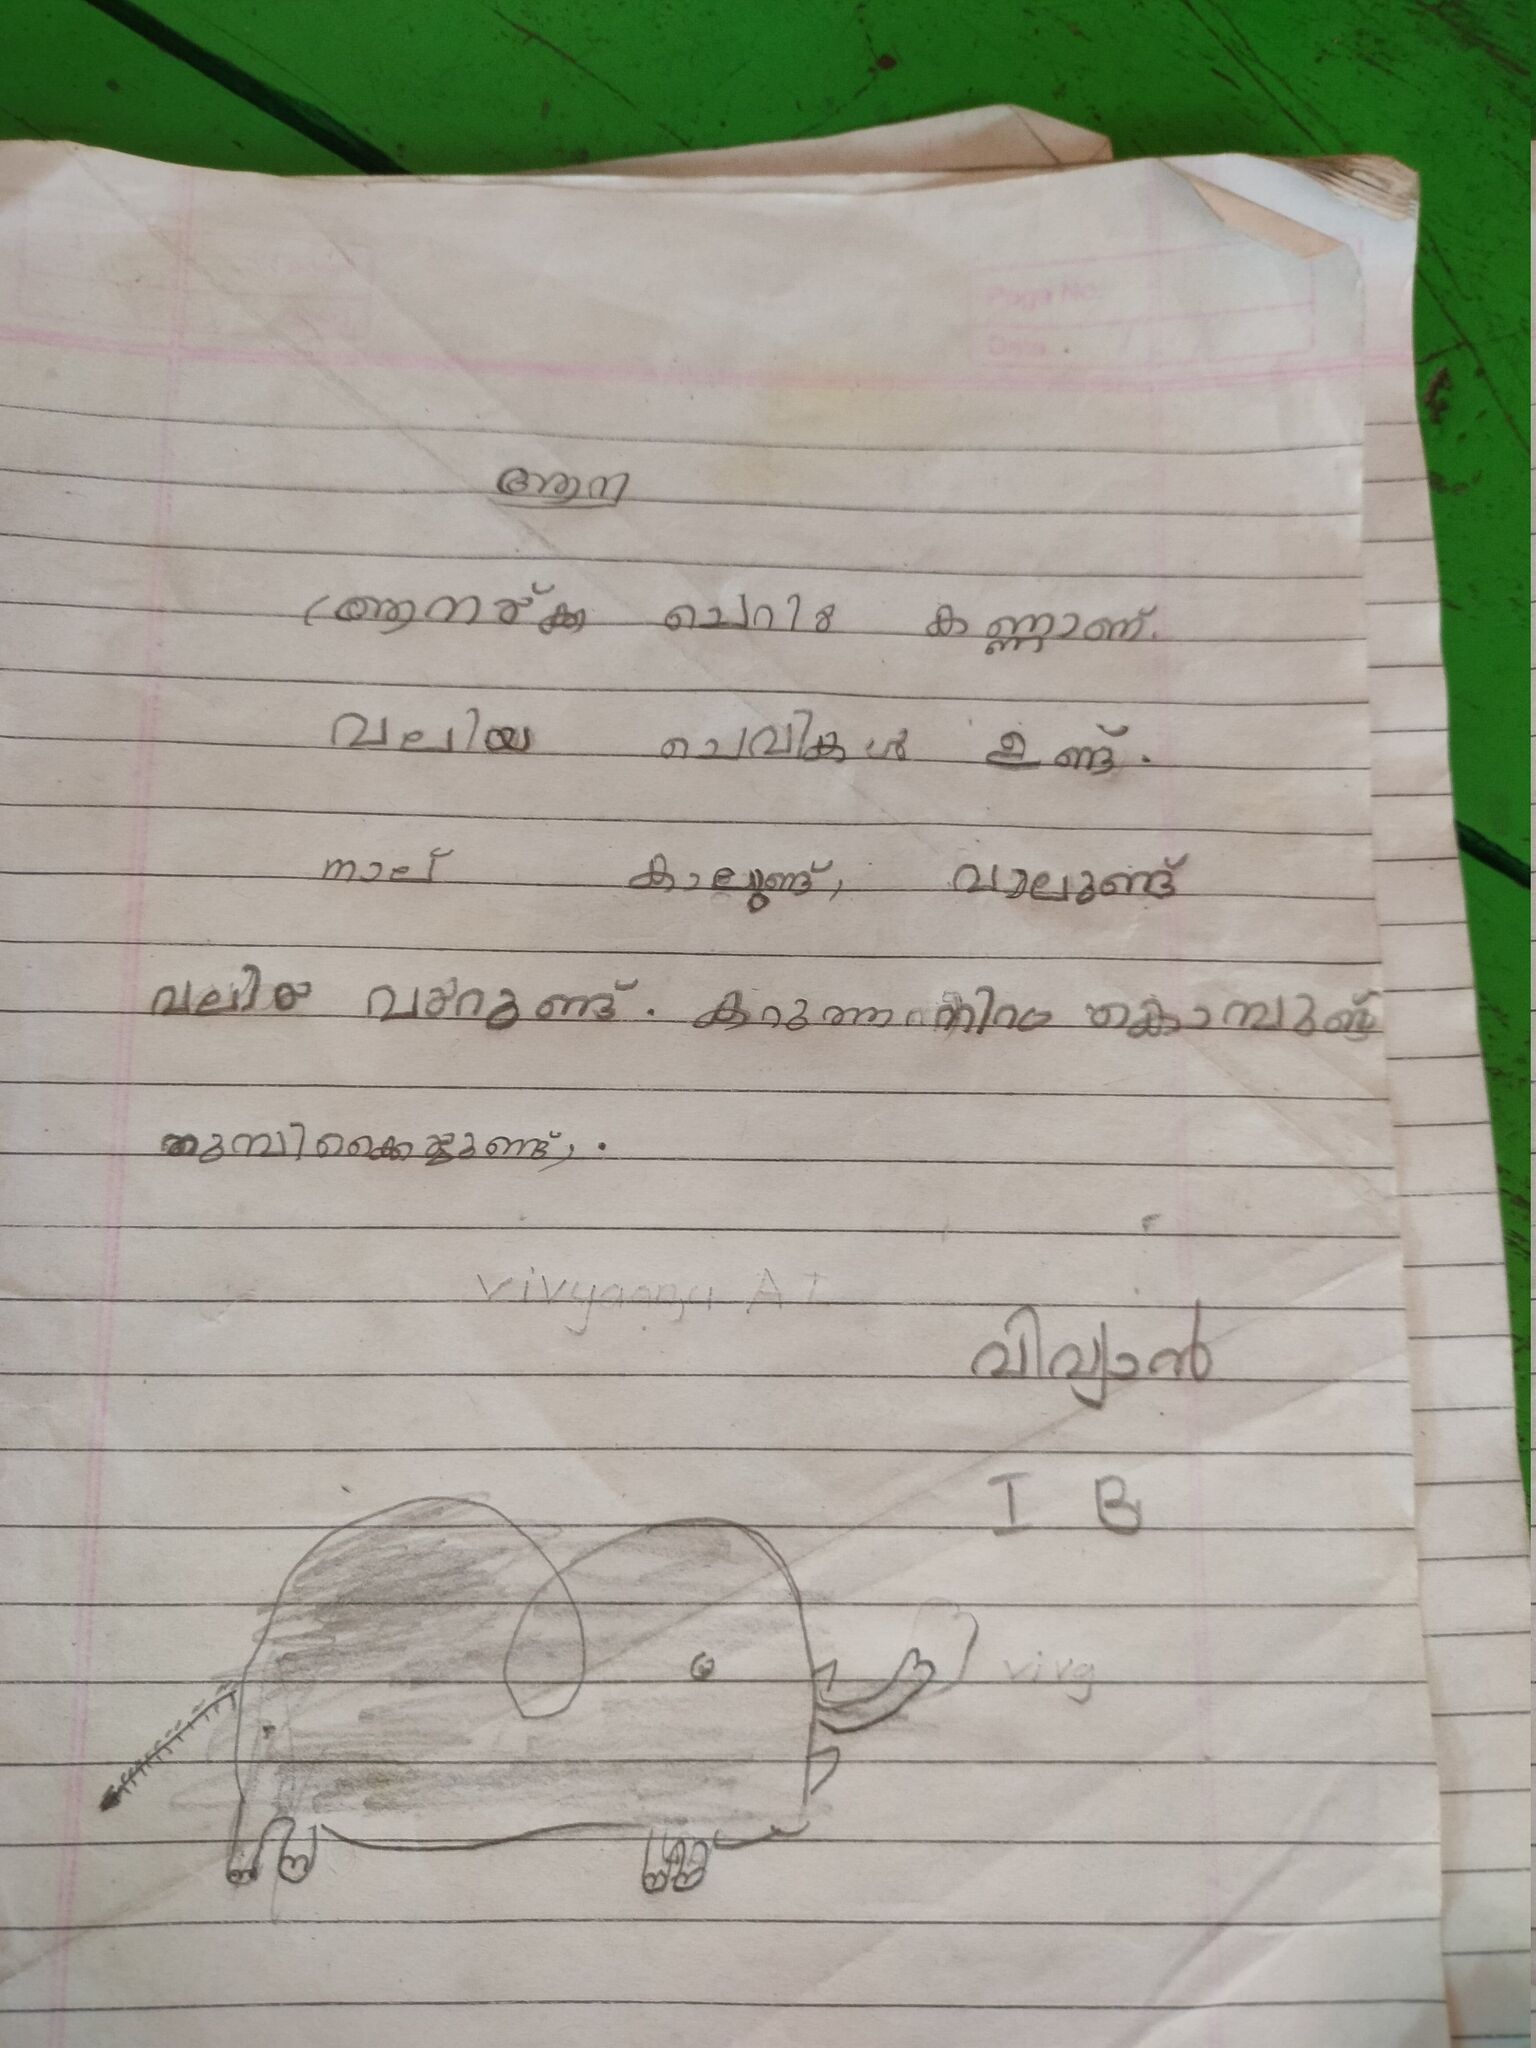 Page No.
Date
ആന
ആനയ്ക്ക ചെറിയ കണ്ണാണ്.
വലിയ ചെവികൾ ഉണ്ട്.
നാല് കാലുണ്ട്, വാലുണ്ട്
വലിയ വയറുണ്ട്. കറുത്ത നിറം കൊമ്പുണ്ട്
തുമ്പിക്കൈയുണ്ട്,.
വിവ്യാൻ
I B
vivg